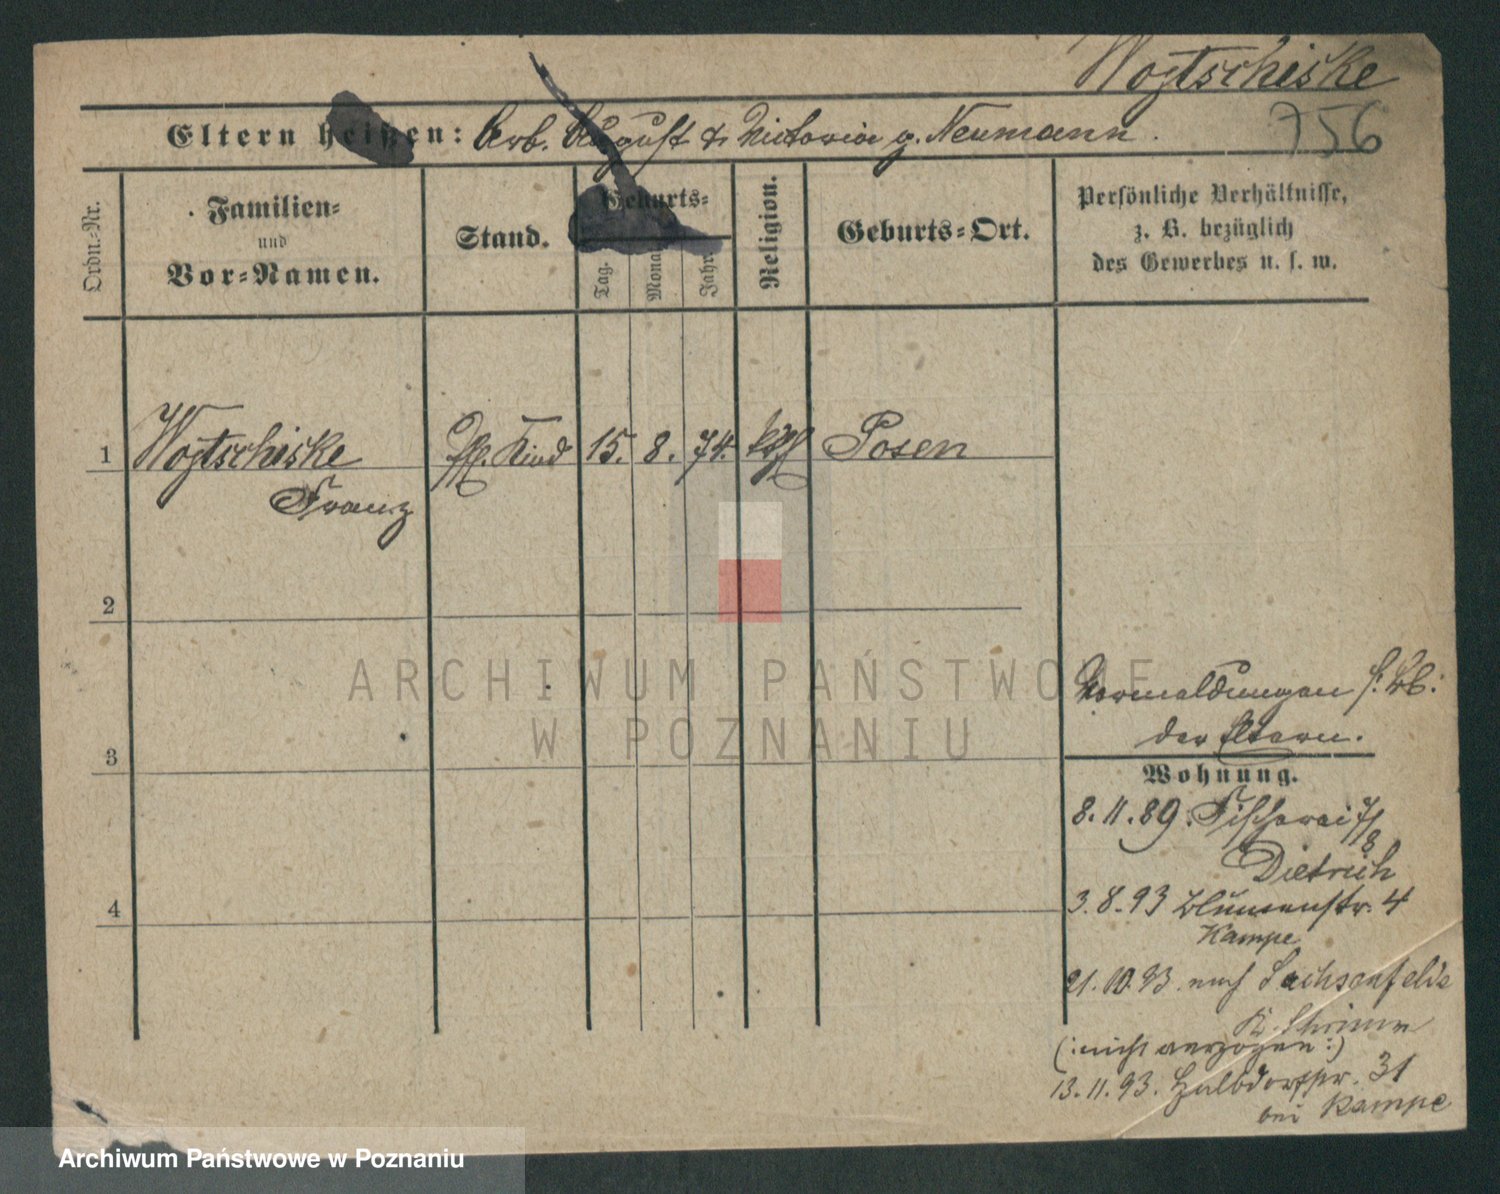 Wojtschiske
Eltern heißen: Arb. August & Victoria g. Neumann.
756
Ordn.-Nr.
Familien-
und
Vor-Namen.
Stand.
Geburts-
Tag.
Monat
Jahr
Religion.
Geburts-Ort.
Persönliche Verhältnisse,
z. B. bezüglich
des Gewerbes u. s. w.
1 Wojtschiske Kind 15. 8. 74. kath Posen
Franz
2
3
4
Vormeldungen s. Bb:
der Eltern.
Wohnung.
8. 11. 89. Fischerei 7/8
Dietrich
3. 8. 93 Blumenstr. 4
Kampe
21. 10. 93. nach Sachsenfelde
K. Schrimm
(: nicht verzogen :)
13. 11. 93. Halbdorfstr. 31
bei Kampe
ARCHIWUM PAŃSTWOWE
W POZNANIU
Archiwum Państwowe w Poznaniu